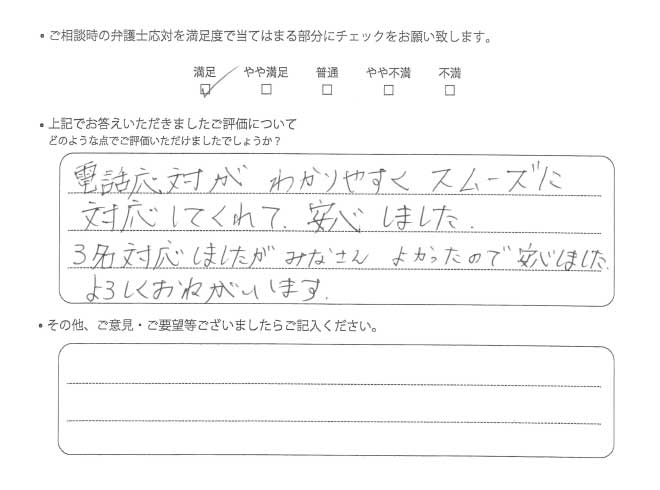 ・ご相談時の弁護士応対を満足度で当てはまる部分にチェックをお願い致します。
満足 やや満足 普通 やや不満 不満
☑ □ □ □ □
・上記でお答えいただきましたご評価について
どのような点でご評価いただけましたでしょうか？
電話応対が わかりやすく スムーズに
対応してくれて、安心しました。
3名対応しましたが みなさん よかったので安心しました。
よろしくおねがいします。
・その他、ご意見・ご要望等ございましたらご記入ください。